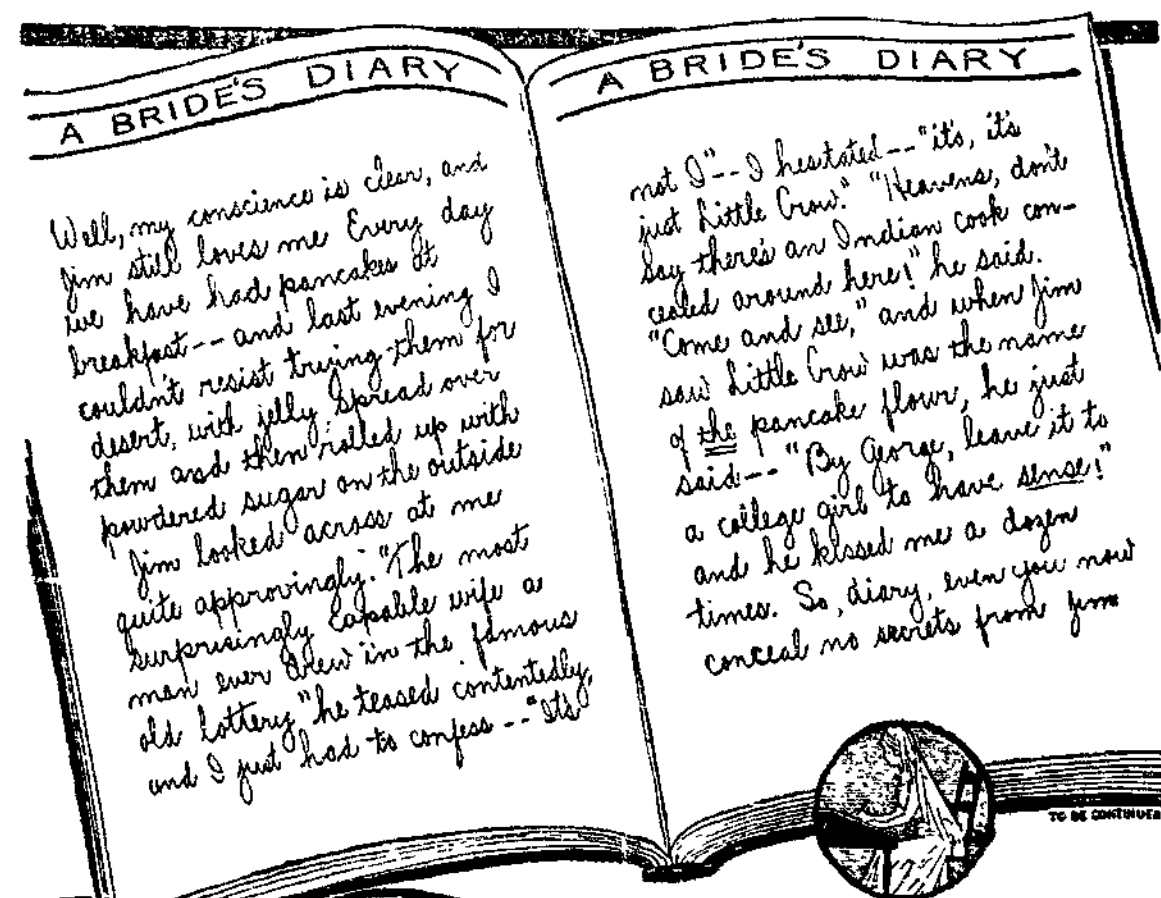 A BRIDE'S DIARY
Well, my conscience is clear, and
Jim still loves me Every day
we have had pancakes at
breakfast -- and last evening I
couldn't resist trying them for
desert, with jelly spread over
them and then rolled up with
powdered sugar on the outside
Jim looked across at me
quite approvingly. "The most
surprisingly capable wife a
man ever drew in the famous
old lottery" he teased contentedly,
and I just had to confess -- "It's
A BRIDE'S DIARY
not I" -- I hesitated -- "it's, it's
just Little Crow." "Heavens, don't
say there's an Indian cook con-
cealed around here!" he said.
"Come and see," and when Jim
saw Little Crow was the name
of the pancake flour, he just
said -- "By George, leave it to
a college girl to have sense!"
and he kissed me a dozen
times. So, diary, even you now
conceal no secrets from Jim
TO BE CONTINUED